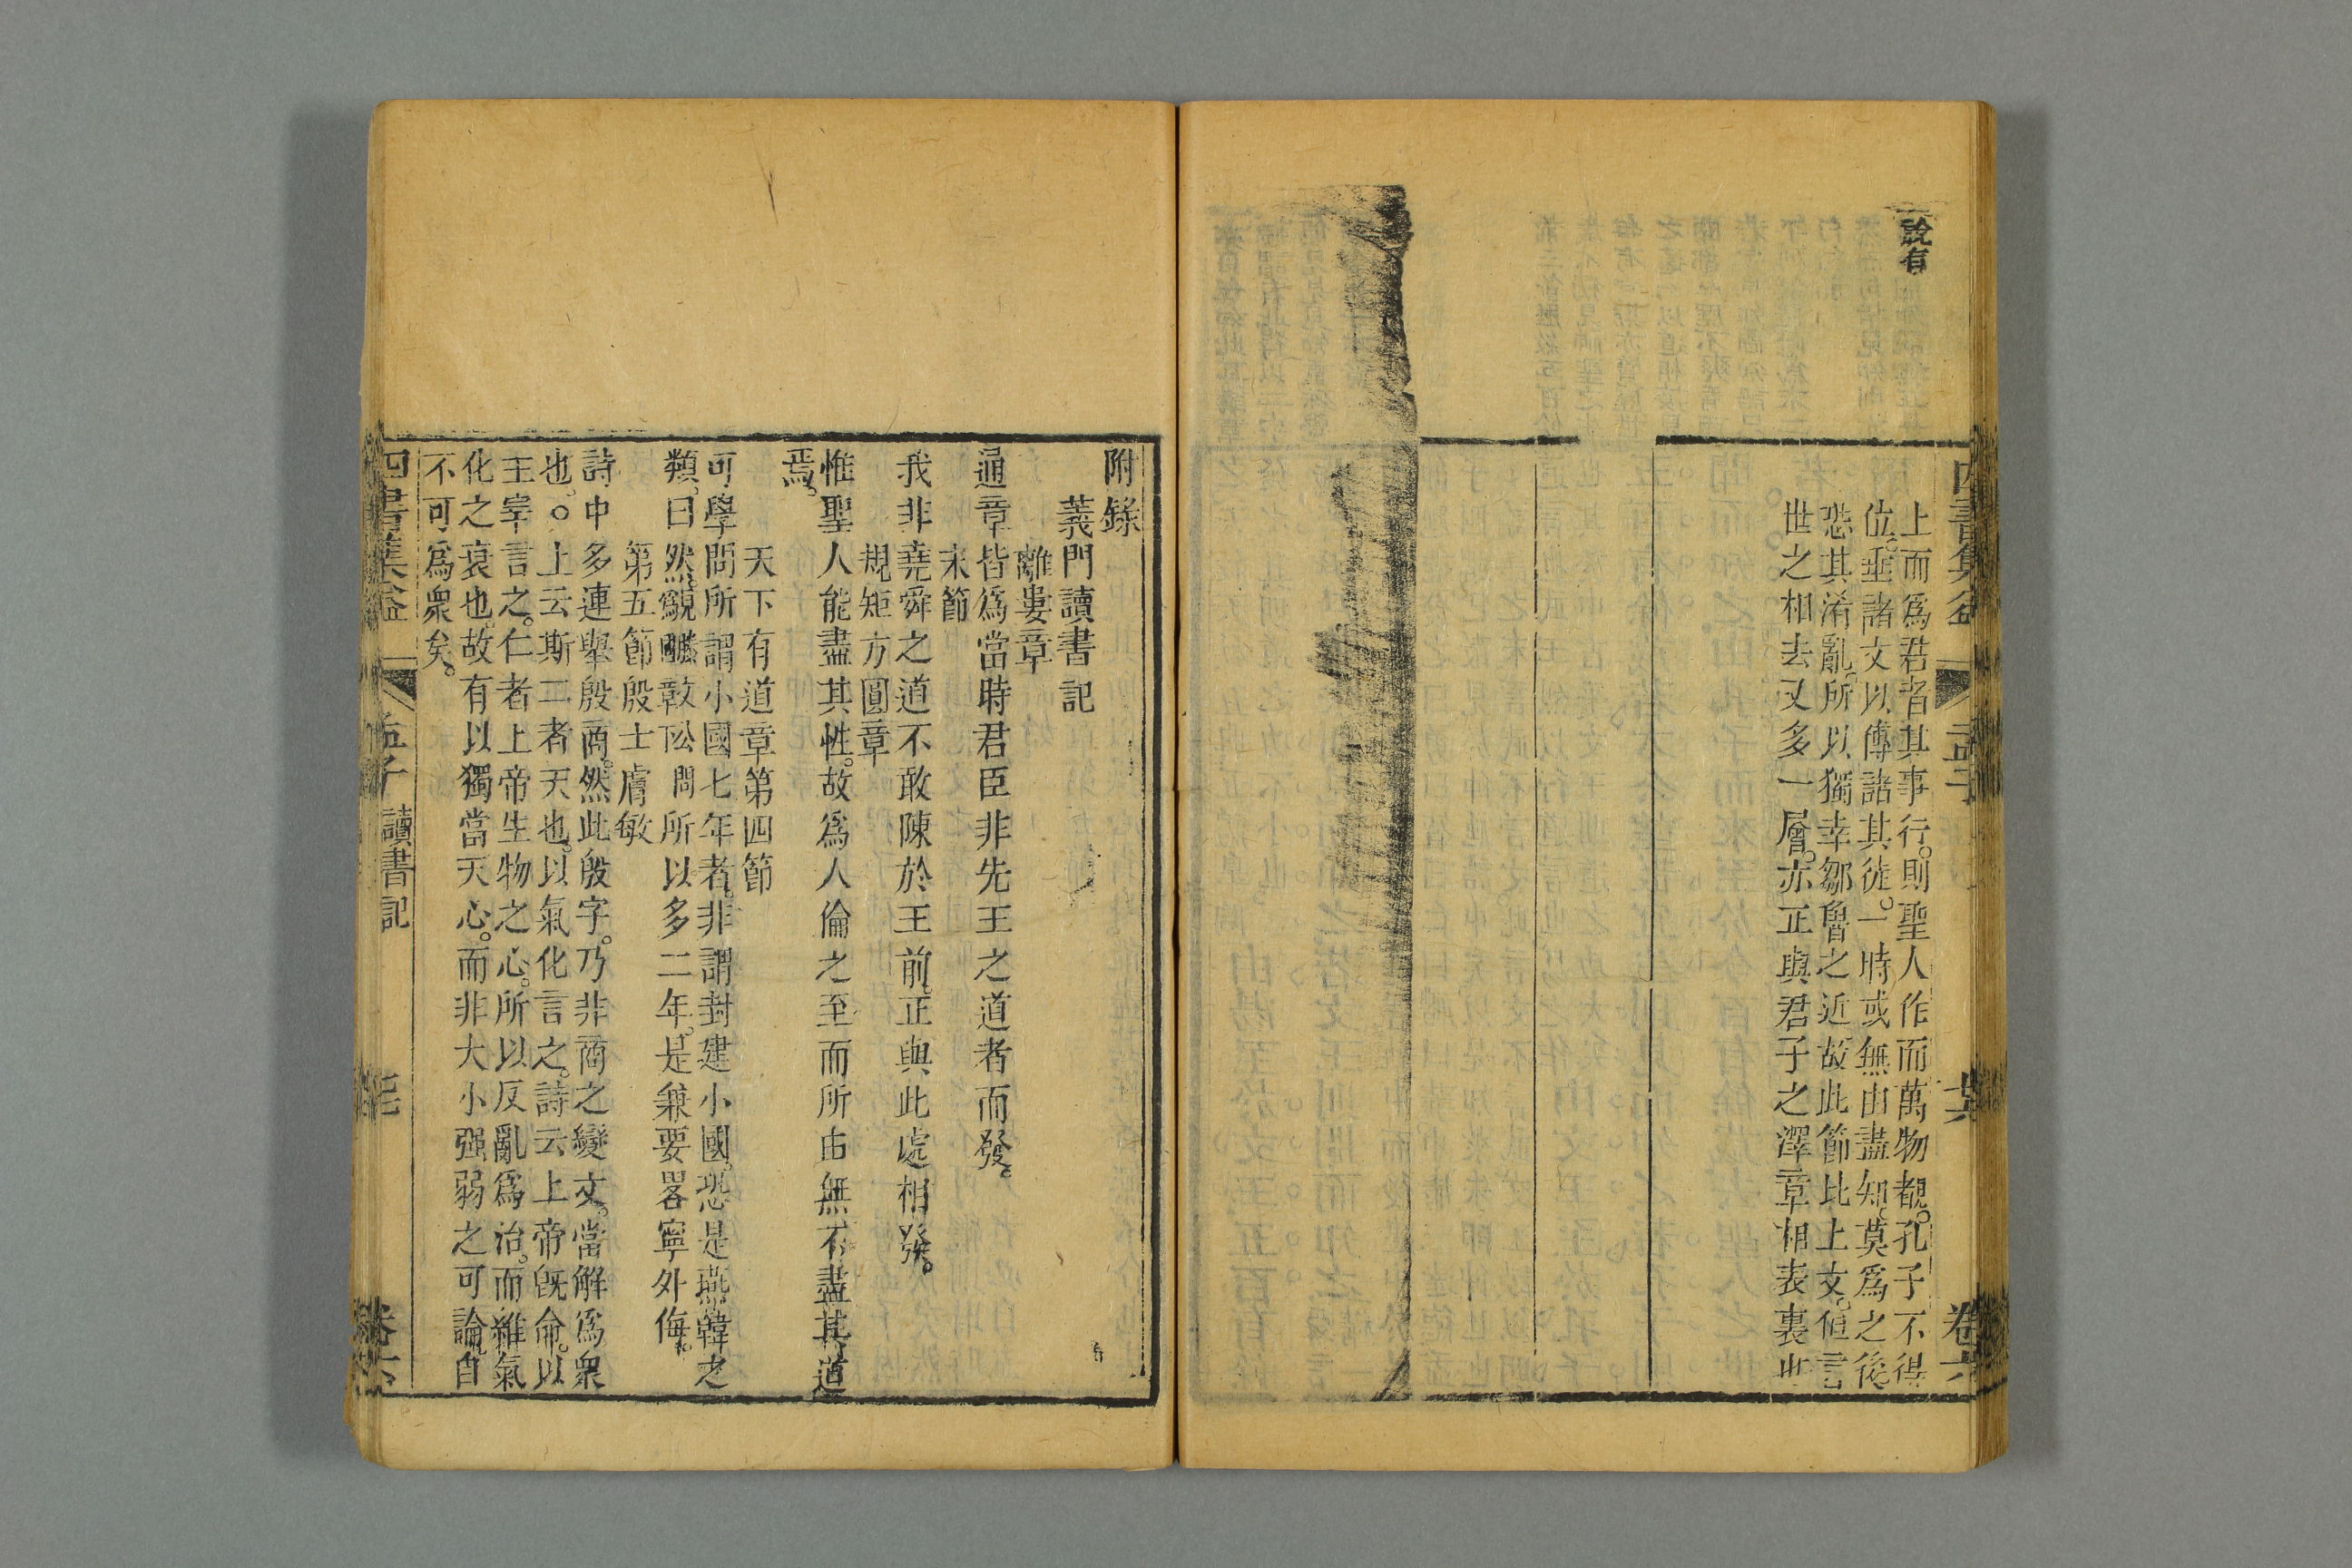 說有
四書集益
孟子
卷六
上而爲君者其事行。則聖人作而萬物覩。孔子不得
位。垂諸文以傳諸其徒。一時或無由盡知。莫爲之後。
恐其淆亂。所以獨幸鄒魯之近。故此節比上文。但言
世之相去又多一層。亦正與君子之澤章相表裏也
附錄
義門讀書記
離婁章
通章皆爲當時君臣非先王之道者而發。
末節
我非堯舜之道不敢陳於王前。正與此處相發。
規矩方圓章
惟聖人能盡其性。故爲人倫之至而所由無不盡其道
焉。
天下有道章第四節
可學問所謂小國七年者。非謂封建小國。恐是燕韓之
類。曰然。覶
問所以多二年。是兼要畧寧外侮。
第五節殷士膚敏
詩中多連舉殷商。然此殷字。乃非商之變文。當解爲衆
也。○上云斯二者天也。以氣化言之。詩云上帝旣命。以
主宰言之。仁者上帝生物之心。所以反亂爲治。而維氣
化之衰也。故有以獨當天心。而非大小强弱之可論。自
不可爲衆矣。
四書集益
孟子
讀書記
卷六